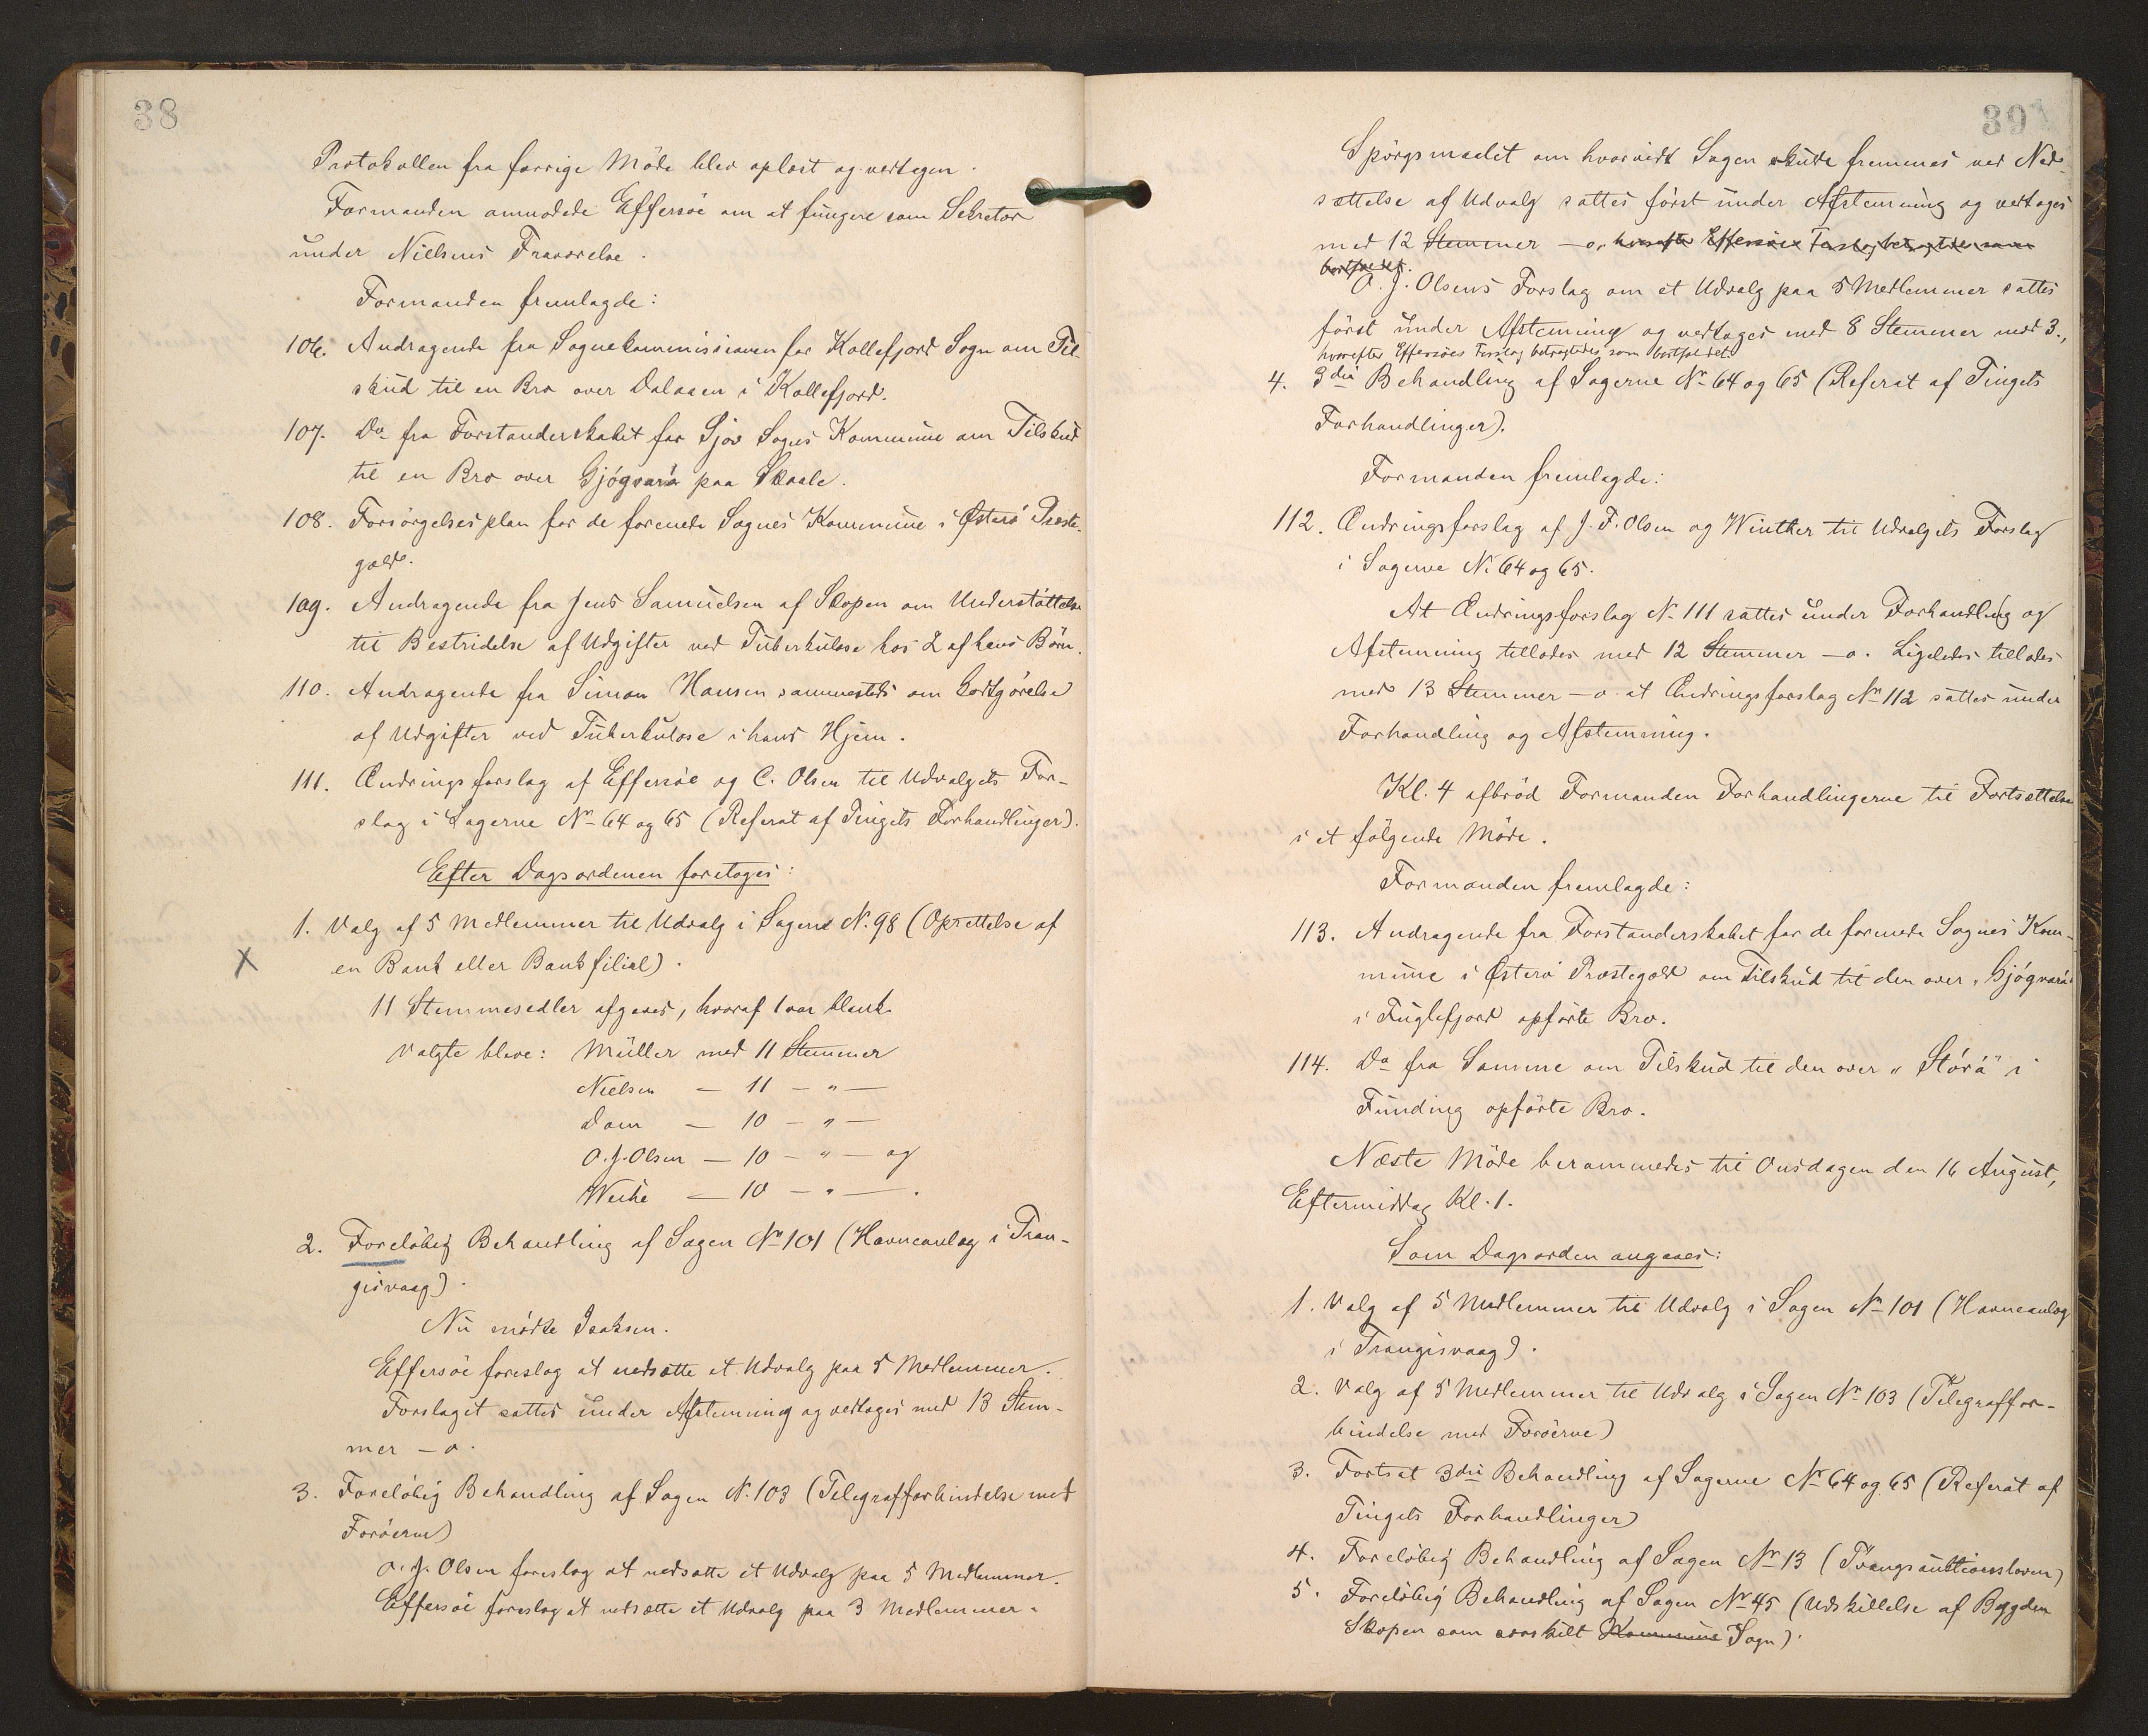 38
Protokollen fra forrige Möde blev oplæst og vedtagen.
Formanden anmodede Effersöe om at fungere som Sekretær
under Nielsens Fraværelse.
Formanden fremlagde:
106. Andragende fra Sognekommissionen for Kollefjord Sogn om Til-
skud til en Bro over Dalaaen i Kollefjord.
107. Do fra Forstanderskabet for Sjov Sogns Kommune om Tilskud
til en Bro over Gjógvará paa Skaale.
108. Forsörgelsesplan for de forenede Sognes Kommune i Österö Præste-
gæld.
109. Andragende fra Jens Samuelsen af Skopen om Understöttelse
til Bestridelse af Udgifter ved Tuberkulose hos 2 af hans Börn.
110. Andragende fra Simon Hansen sammesteds om Godtgörelse
af Udgifter ved Tuberkulose i hans Hjem.
111. Ændringsforslag af Effersöe og C. Olsen til Udvalgets For-
slag i Sagerne No 64 og 65 (Referat af Tingets Forhandlinger).
Efter Dagsordenen foretoges:
1. Valg af 5 Medlemmer til Udvalg i Sagen No. 98 (Oprettelse af
X en Bank eller Bankfilial).
11 Stemmesedler afgaves, hvoraf 1 var blank.
Valgte bleve: Müller med 11 Stemmer
Nielsen — 11 — " —
Dam — 10 — " —
O. J. Olsen — 10 — " — og
Weihe — 10 — " — .
2. Forelöbig Behandling af Sagen No 101 (Havneanlæg i Tran-
gisvaag).
Nu mödte Isaksen.
Effersöe foreslog at nedsætte et Udvalg paa 5 Medlemmer.
Forslaget sattes under Afstemning og vedtoges med 13 Stem-
mer — o.
3. Forelöbig Behandling af Sagen No. 103 (Telegrafforbindelse med
Færöerne)
O. J. Olsen foreslog at nedsætte et Udvalg paa 5 Medlemmer.
Effersöe foreslog at nedsætte et Udvalg paa 3 Medlemmer.
39
Spörgsmaalet om hvorvidt Sagen skulde fremmes ved Ned-
sættelse af Udvalg sattes först under Afstemning og vedtoges
med 12 Stemmer — o, hvorefter Effersöes Forslag betragtedes som
bortfaldet.
O. J. Olsens Forslag om et Udvalg paa 5 Medlemmer sattes
först under Afstemning og vedtoges med 8 Stemmer mod 3.,
hvorefter Effersöes Forslag betragtedes som bortfaldet.
4. 3die Behandling af Sagerne No 64 og 65 (Referat af Tingets
Forhandlinger).
Formanden fremlagde:
112. Ændringsforslag af J. F. Olsen og Winther til Udvalgets Forslag
i Sagerne No. 64 og 65.
At Ændringsforslag No 111 sattes under Forhandling og
Afstemning tillodes med 12 Stemmer — o. Ligeledes tillodes
med 13 Stemmer — o at Ændringsforslag No 112 sattes under
Forhandling og Afstemning.
Kl. 4 afbröd Formanden Forhandlingerne til Fortsættelse
i et fölgende Möde.
Formanden fremlagde:
113. Andragende fra Forstanderskabet for de forenede Sognes Kom-
mune i Österö Præstegæld om Tilskud til den over "Gjógvará"
i Fuglefjord opförte Bro.
114. Do fra Samme om Tilskud til den over "Stórá" i
Funding opförte Bro.
Næste Möde berammedes til Onsdagen den 16 August,
Eftermiddag Kl. 1.
Som Dagsorden angaves:
1. Valg af 5 Medlemmer til Udvalg i Sagen No 101 (Havneanlæg
i Trangisvaag).
2. Valg af 5 Medlemmer til Udvalg i Sagen No 103 (Telegraffor-
bindelse med Færöerne)
3. Fortsat 3die Behandling af Sagerne No 64 og 65 (Referat af
Tingets Forhandlinger)
4. Forelöbig Behandling af Sagen No 13 (Tvangsauktionsloven)
5. Forelöbig Behandling af Sagen No 45 (Udskillelse af Bygden
Skopen som særskilt Kommune Sogn).